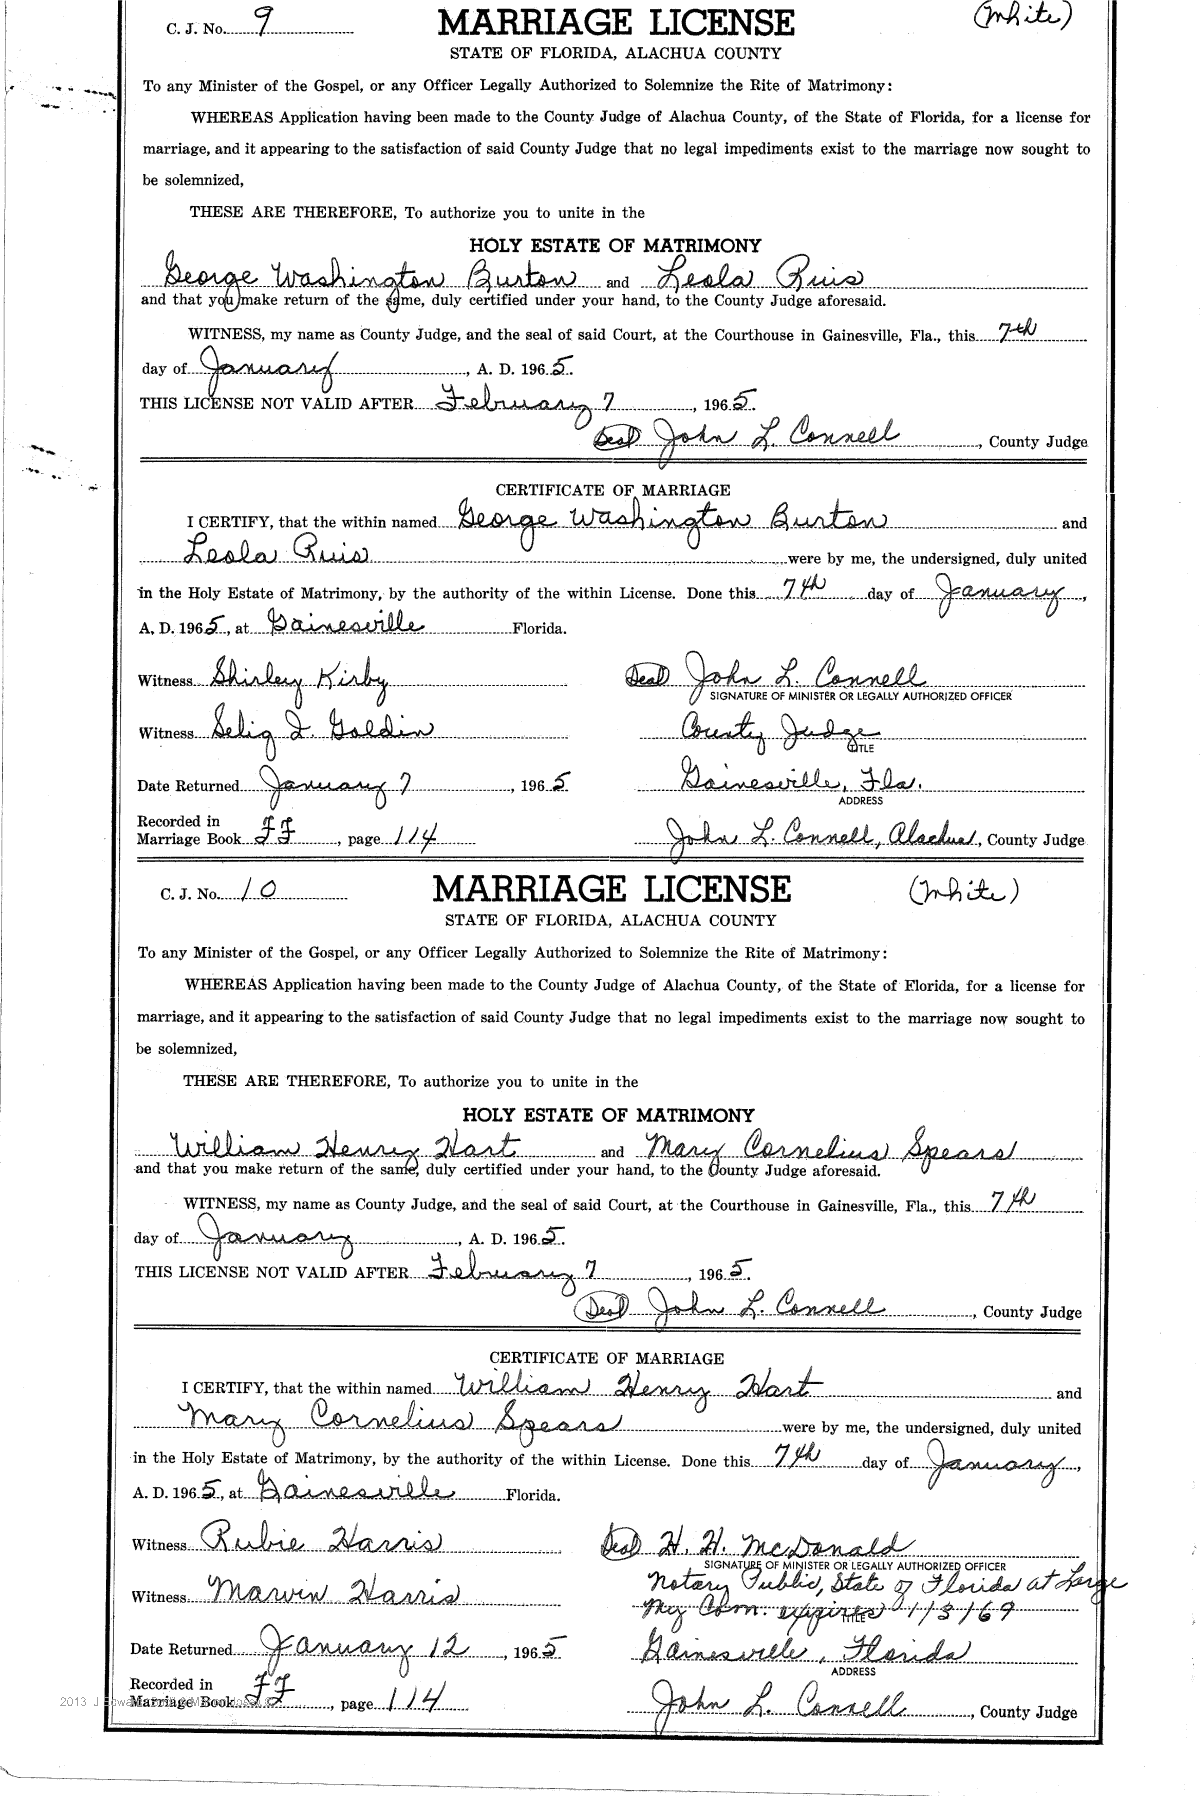 C. J. No. 9 MARRIAGE LICENSE (White)
STATE OF FLORIDA, ALACHUA COUNTY
To any Minister of the Gospel, or any Officer Legally Authorized to Solemnize the Rite of Matrimony:
WHEREAS Application having been made to the County Judge of Alachua County, of the State of Florida, for a license for
marriage, and it appearing to the satisfaction of said County Judge that no legal impediments exist to the marriage now sought to
be solemnized,
THESE ARE THEREFORE, To authorize you to unite in the
HOLY ESTATE OF MATRIMONY
George Washington Burton and Leola Ruis
and that you make return of the same, duly certified under your hand, to the County Judge aforesaid.
WITNESS, my name as County Judge, and the seal of said Court, at the Courthouse in Gainesville, Fla., this 7th
day of January, A. D. 1965.
THIS LICENSE NOT VALID AFTER February 7, 1965.
(Seal) John L. Connell, County Judge
CERTIFICATE OF MARRIAGE
I CERTIFY, that the within named George Washington Burton and
Leola Ruis were by me, the undersigned, duly united
in the Holy Estate of Matrimony, by the authority of the within License. Done this 7th day of January,
A. D. 1965, at Gainesville Florida.
Witness Shirley Kirby (Seal) John L. Connell
SIGNATURE OF MINISTER OR LEGALLY AUTHORIZED OFFICER
Witness Selig I. Goldin County Judge
TITLE
Date Returned January 7, 1965 Gainesville, Fla.
ADDRESS
Recorded in
Marriage Book FF, page 114 John L. Connell, Alachua, County Judge
C. J. No. 10 MARRIAGE LICENSE (White)
STATE OF FLORIDA, ALACHUA COUNTY
To any Minister of the Gospel, or any Officer Legally Authorized to Solemnize the Rite of Matrimony:
WHEREAS Application having been made to the County Judge of Alachua County, of the State of Florida, for a license for
marriage, and it appearing to the satisfaction of said County Judge that no legal impediments exist to the marriage now sought to
be solemnized,
THESE ARE THEREFORE, To authorize you to unite in the
HOLY ESTATE OF MATRIMONY
William Henry Hart and Mary Cornelius Spears
and that you make return of the same, duly certified under your hand, to the County Judge aforesaid.
WITNESS, my name as County Judge, and the seal of said Court, at the Courthouse in Gainesville, Fla., this 7th
day of January, A. D. 1965.
THIS LICENSE NOT VALID AFTER February 7, 1965.
(Seal) John L. Connell, County Judge
CERTIFICATE OF MARRIAGE
I CERTIFY, that the within named William Henry Hart and
Mary Cornelius Spears were by me, the undersigned, duly united
in the Holy Estate of Matrimony, by the authority of the within License. Done this 7th day of January,
A. D. 1965, at Gainesville Florida.
Witness Rubie Harris (Seal) H. H. McDonald
SIGNATURE OF MINISTER OR LEGALLY AUTHORIZED OFFICER
Witness Marvin Harris Notary Public, State of Florida at Large
My Com. expires 1/3/69
TITLE
Date Returned January 12, 1965 Gainesville, Florida
ADDRESS
Recorded in
Marriage Book FF, page 114 John L. Connell, County Judge
2013